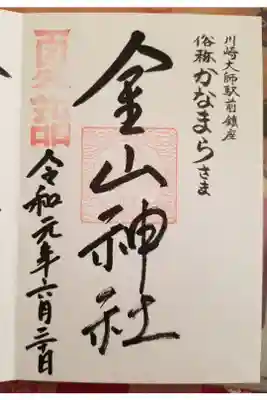 川崎大師駅前鎮座
俗称かなまらさま
金山神社
令和元年六月二十日